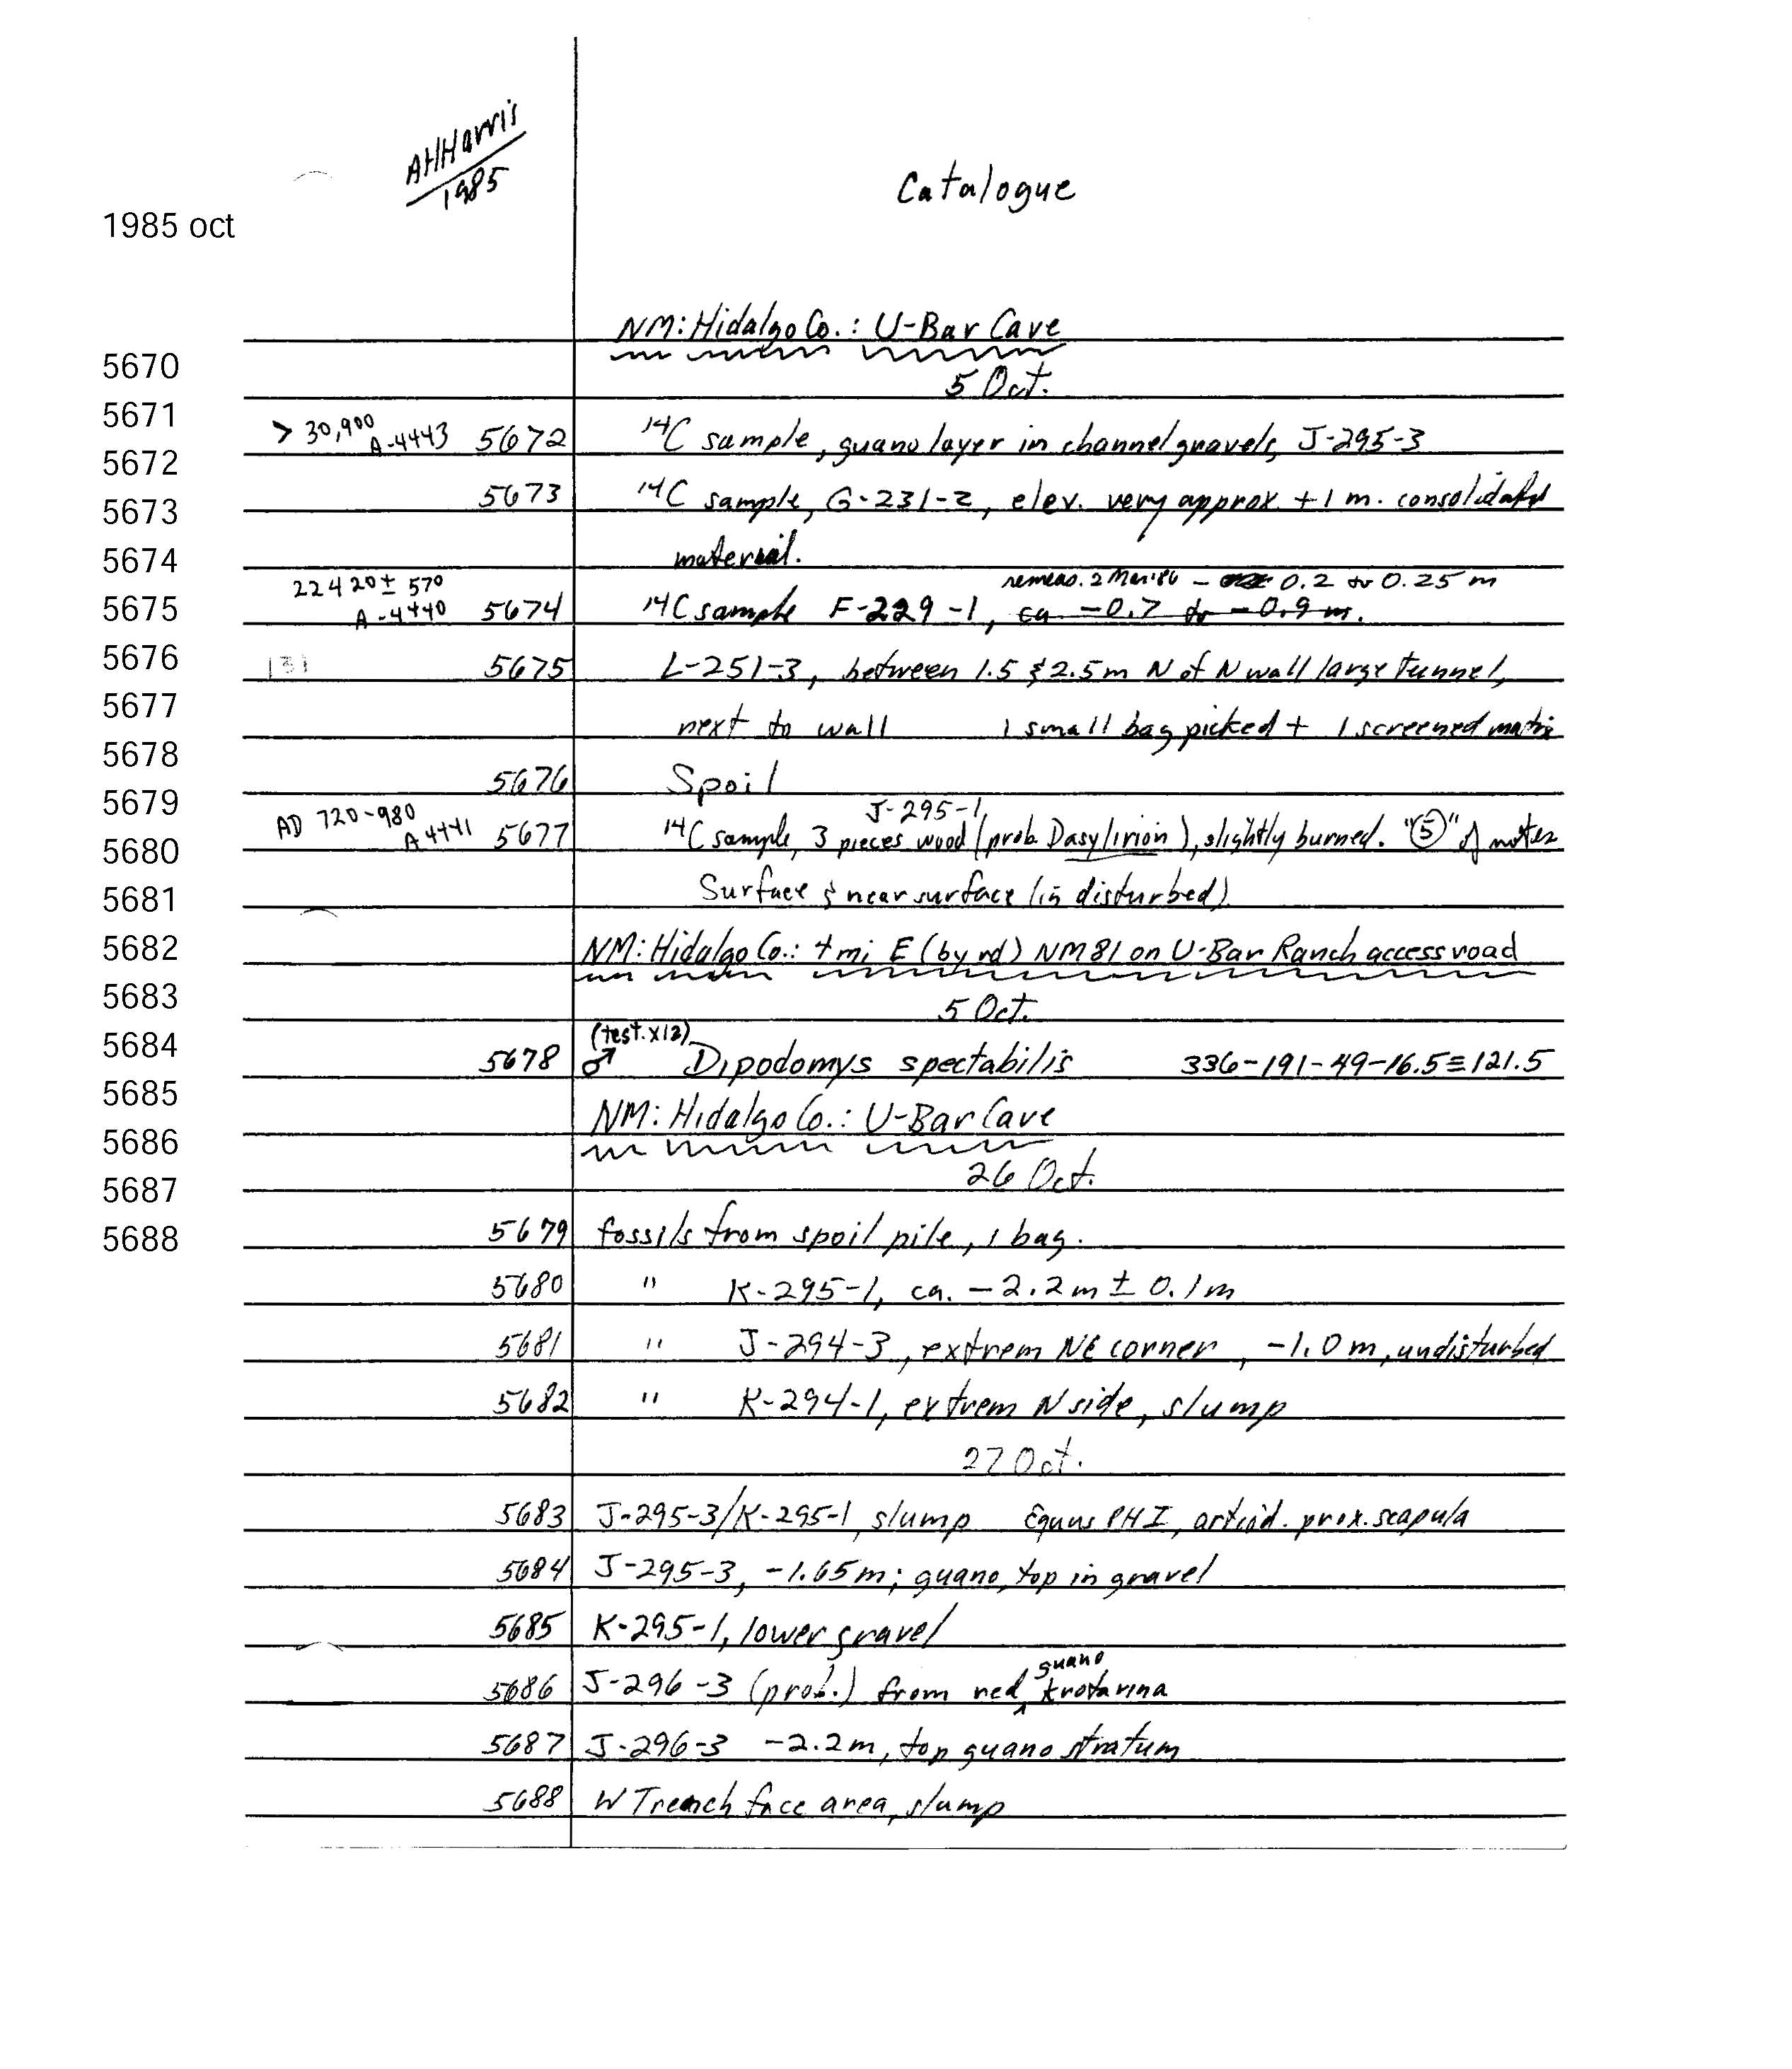 AHHarris
1985
Catalogue
1985 oct
NM: Hidalgo Co.: U-Bar Cave
5670
5 Oct.
5671
> 30,900
A-4443 5672 14C sample, guano layer in channel gravels, J-295-3
5672
5673 14C sample, G-231-2, elev. very approx. +1 m. consolidated
5673
material.
5674
22420± 570 remeas. 2 Mar '86 - 0.2 to 0.25 m
A-4440 5674 14C sample F-229-1, ca -0.7 to -0.9 m.
5675
5676
5675 L-251-3, between 1.5 & 2.5m N of N wall large tunnel,
5677
next to wall 1 small bag picked + 1 screened matrix
5678
5676 Spoil
5679
AD 720-980 J-295-1
A4441 5677 14C sample, 3 pieces wood (prob. Dasylirion), slightly burned. "5" of notes
5680
Surface & near surface (in disturbed)
5681
5682
NM: Hidalgo Co.: 4 mi E (by rd) NM81 on U-Bar Ranch access road
5683
5 Oct.
5684
(test. x13)
5678 ♂ Dipodomys spectabilis 336-191-49-16.5≡121.5
5685
NM: Hidalgo Co.: U-Bar Cave
5686
26 Oct.
5687
5688
5679 fossils from spoil pile, 1 bag.
5680 " K-295-1, ca. -2.2m ± 0.1m
5681 " J-294-3, extrem NE corner, -1.0 m, undisturbed
5682 " K-294-1, extrem N side, slump
27 Oct.
5683 J-295-3/K-295-1, slump Equus PH I, artiod. prox. scapula
5684 J-295-3, -1.65m; guano, top in gravel
5685 K-295-1, lower gravel
guano
5686 J-296-3 (prob.) from red krotarina
5687 J-296-3 -2.2m, top guano stratum
5688 W Trench face area, slump